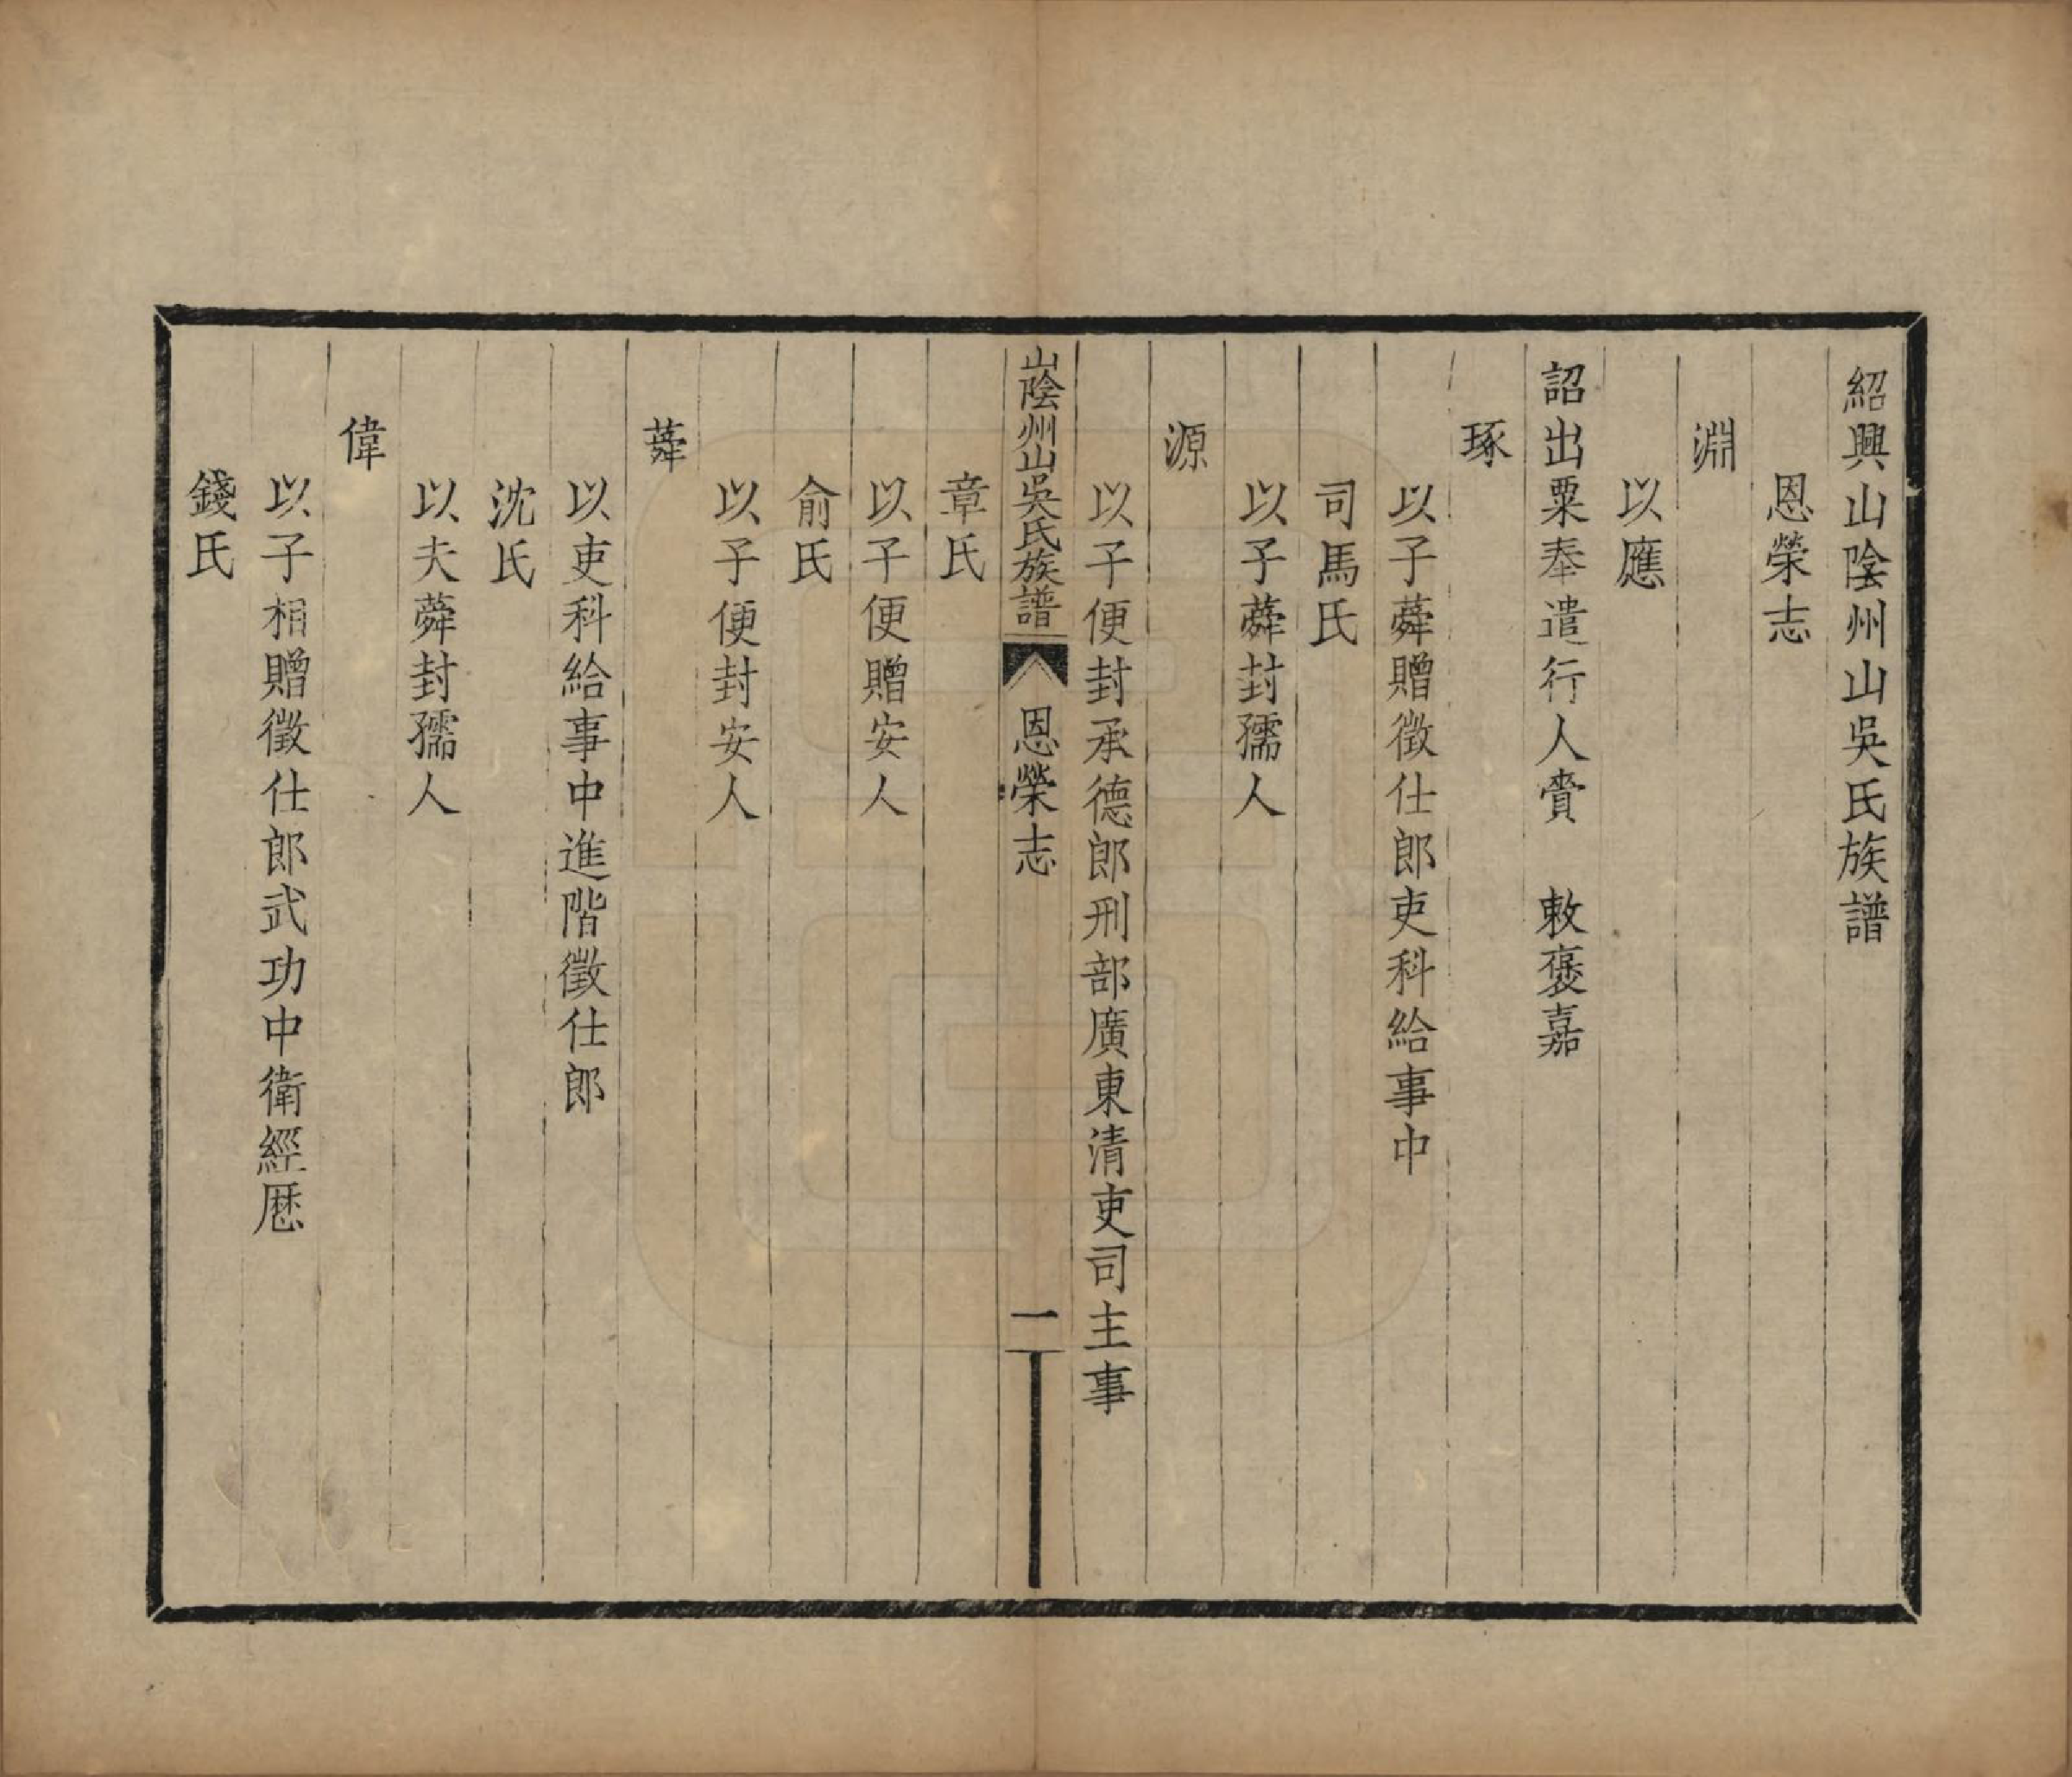 紹興山陰州山吳氏族譜
恩榮志
淵
以應
詔出粟奉遣行人賚　敕褒嘉
琢
以子蕣贈徵仕郎吏科給事中
司馬氏
以子蕣封孺人
源
以子便封承德郎刑部廣東清吏司主事
山陰州山吳氏族譜　恩榮志　一
章氏
以子便贈安人
俞氏
以子便封安人
蕣
以吏科給事中進階徵仕郎
沈氏
以夫蕣封孺人
偉
以子相贈徵仕郎武功中衛經歷
錢氏